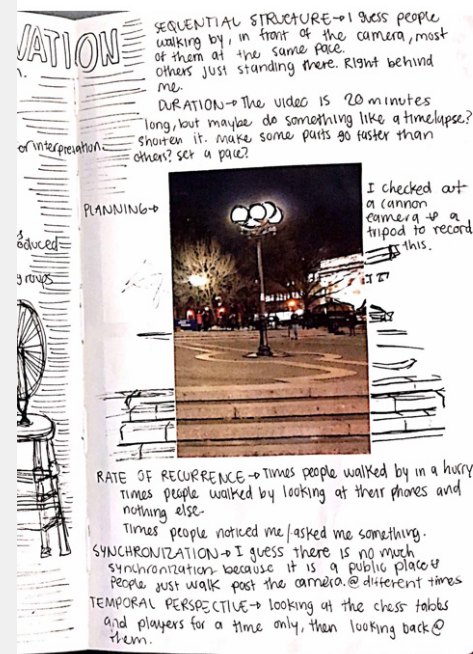 VATION
n.
or interpretation
oduced
groups
SEQUENTIAL STRUCTURE→I guess people
walking by, in front of the camera, most
of them at the same pace.
others just standing there. Right behind
me.
DURATION→The video is 20 minutes
long, but maybe do something like a timelapse?
shorten it. make some parts go faster than
others? set a pace?
PLANNING→
I checked out
a cannon
camera & a
tripod to record
this.
RATE OF RECURRENCE→Times people walked by in a hurry
Times people walked by looking at their phones and
nothing else.
Times people noticed me/asked me something.
SYNCHRONIZATION→I guess there is no much
synchronization because it is a public place &
people just walk past the camera.@ different times
TEMPORAL PERSPECTIVE→ looking at the chess tables
and players for a time only, then looking back@
them.